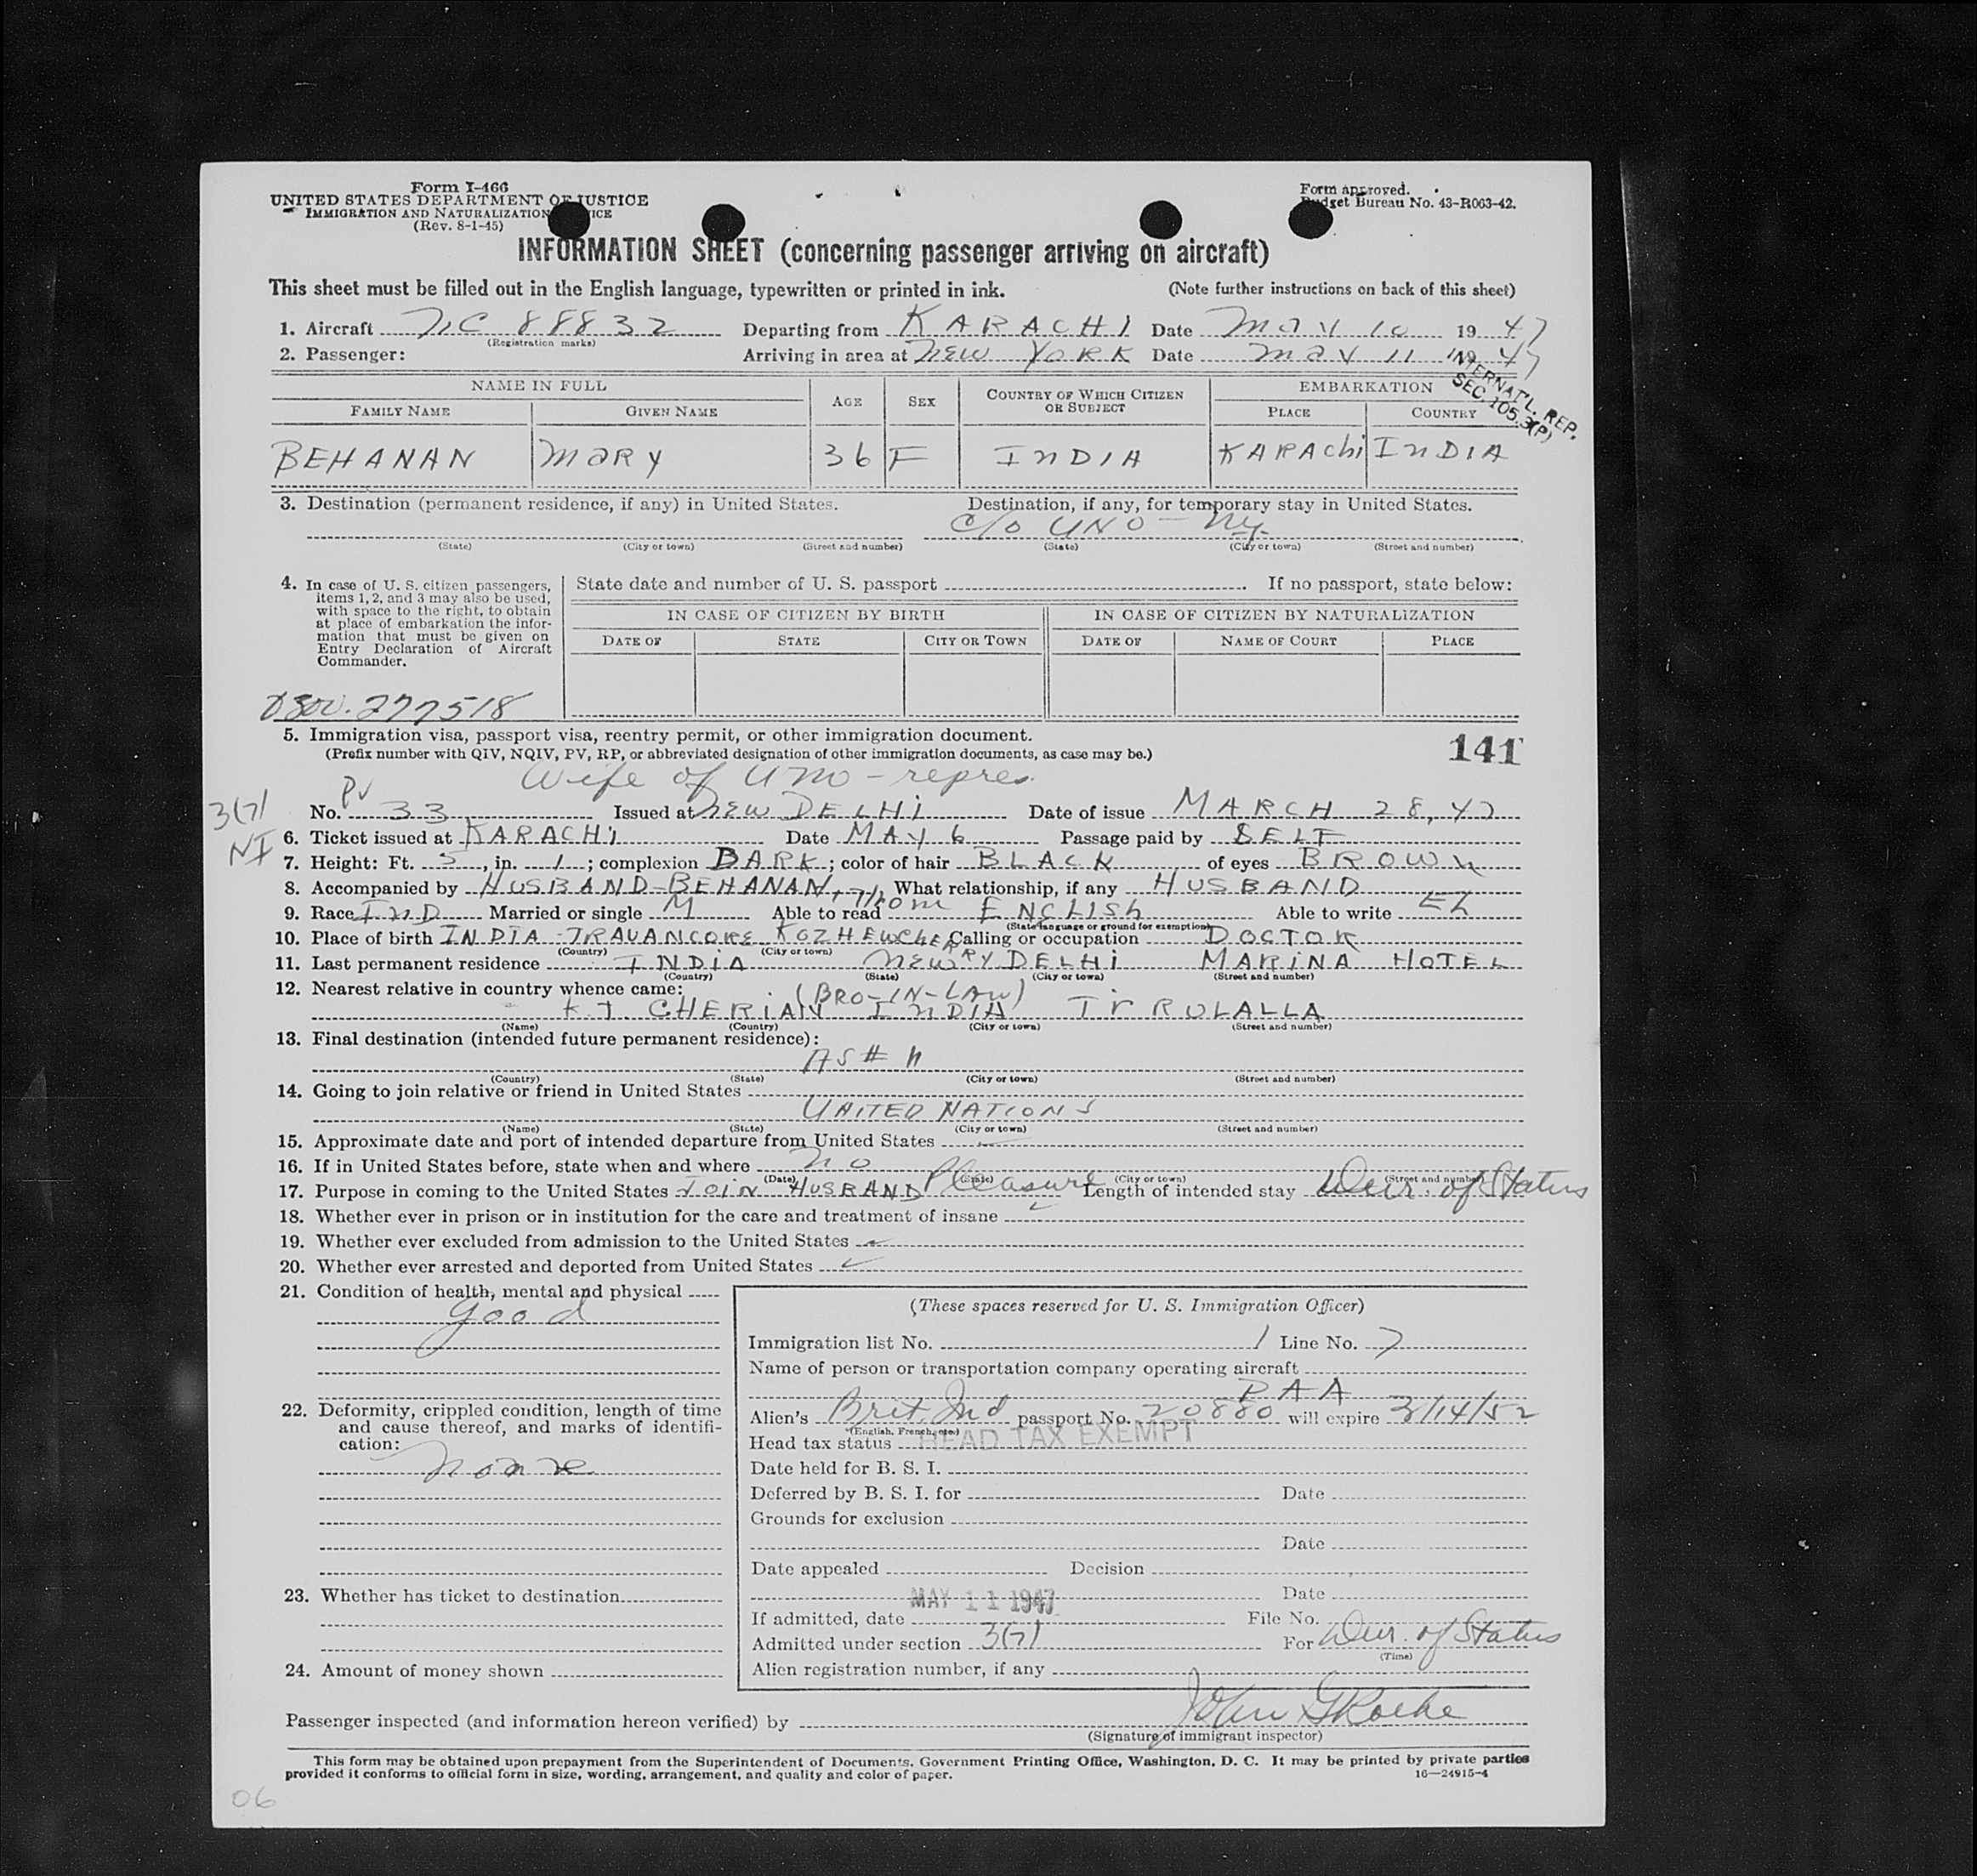 Form I-466
UNITED STATES DEPARTMENT OF JUSTICE
IMMIGRATION AND NATURALIZATION
(Rev. 8-1-45)
Form approved.
Budget Bureau No. 43-R063-42.
INFORMATION SHEET (concerning passenger arriving on aircraft)
This sheet must be filled out in the English language, typewritten or printed in ink. (Note further instructions on back of this sheet)
1. Aircraft NC 88832 Departing from KARACHI Date May 10 1947
(Registration marks)
2. Passenger: Arriving in area at NEW YORK Date MAY 11 1947
INTERNAT'L. REP.
SEC. 105.3(P)
NAME IN FULL AGE SEX COUNTRY OF WHICH CITIZEN OR SUBJECT EMBARKATION
FAMILY NAME GIVEN NAME PLACE COUNTRY
BEHANAN MARY 36 F INDIA KARACHI INDIA
3. Destination (permanent residence, if any) in United States. Destination, if any, for temporary stay in United States.
C/O UNO - NY.
(State) (City or town) (Street and number) (State) (City or town) (Street and number)
4. In case of U. S. citizen passengers, items 1, 2, and 3 may also be used, with space to the right, to obtain at place of embarkation the information that must be given on Entry Declaration of Aircraft Commander.
State date and number of U. S. passport If no passport, state below:
IN CASE OF CITIZEN BY BIRTH IN CASE OF CITIZEN BY NATURALIZATION
DATE OF STATE CITY OR TOWN DATE OF NAME OF COURT PLACE
277518
5. Immigration visa, passport visa, reentry permit, or other immigration document.
(Prefix number with QIV, NQIV, PV, RP, or abbreviated designation of other immigration documents, as case may be.)
141
Wife of UNO - repres.
3(7)
NI
PV
No. 33 Issued at NEW DELHI Date of issue MARCH 28, 47
6. Ticket issued at KARACHI Date MAY 6 Passage paid by SELF
7. Height: Ft. 5, in. 1; complexion DARK; color of hair BLACK of eyes BROWN
8. Accompanied by HUSBAND-BEHANAN, What relationship, if any HUSBAND
9. Race IND Married or single M Able to read ENGLISH Able to write
(State language or ground for exemption)
10. Place of birth INDIA TRAVANCORE Calling or occupation DOCTOR
(Country) (City or town)
11. Last permanent residence INDIA NEW DELHI MARINA HOTEL
(Country) (State) (City or town) (Street and number)
12. Nearest relative in country whence came: (BRO-IN-LAW)
K.T. CHERIAN INDIA TIRULALLA
(Name) (Country) (City or town) (Street and number)
13. Final destination (intended future permanent residence):
AS # 11
(Country) (State) (City or town) (Street and number)
14. Going to join relative or friend in United States
UNITED NATIONS
(Name) (State) (City or town) (Street and number)
15. Approximate date and port of intended departure from United States
16. If in United States before, state when and where NO
(Date) (State) (City or town) (Street and number)
17. Purpose in coming to the United States JOIN HUSBAND Pleasure Length of intended stay Dur. of Status
18. Whether ever in prison or in institution for the care and treatment of insane
19. Whether ever excluded from admission to the United States
20. Whether ever arrested and deported from United States
21. Condition of health, mental and physical
good
22. Deformity, crippled condition, length of time and cause thereof, and marks of identification:
none
23. Whether has ticket to destination
24. Amount of money shown
(These spaces reserved for U. S. Immigration Officer)
Immigration list No. 1 Line No. 7
Name of person or transportation company operating aircraft
PAA
Alien's Brit. Ind passport No. 20880 will expire 3/14/52
(English, French, etc.)
Head tax status HEAD TAX EXEMPT
Date held for B. S. I.
Deferred by B. S. I. for Date
Grounds for exclusion
Date
Date appealed Decision
Date
MAY 11 1947
If admitted, date File No.
Admitted under section 3(7) For Dur. of Status
(Time)
Alien registration number, if any
Passenger inspected (and information hereon verified) by John
(Signature of immigrant inspector)
This form may be obtained upon prepayment from the Superintendent of Documents, Government Printing Office, Washington, D. C. It may be printed by private parties
provided it conforms to official form in size, wording, arrangement, and quality and color of paper. 16—24915-4
06